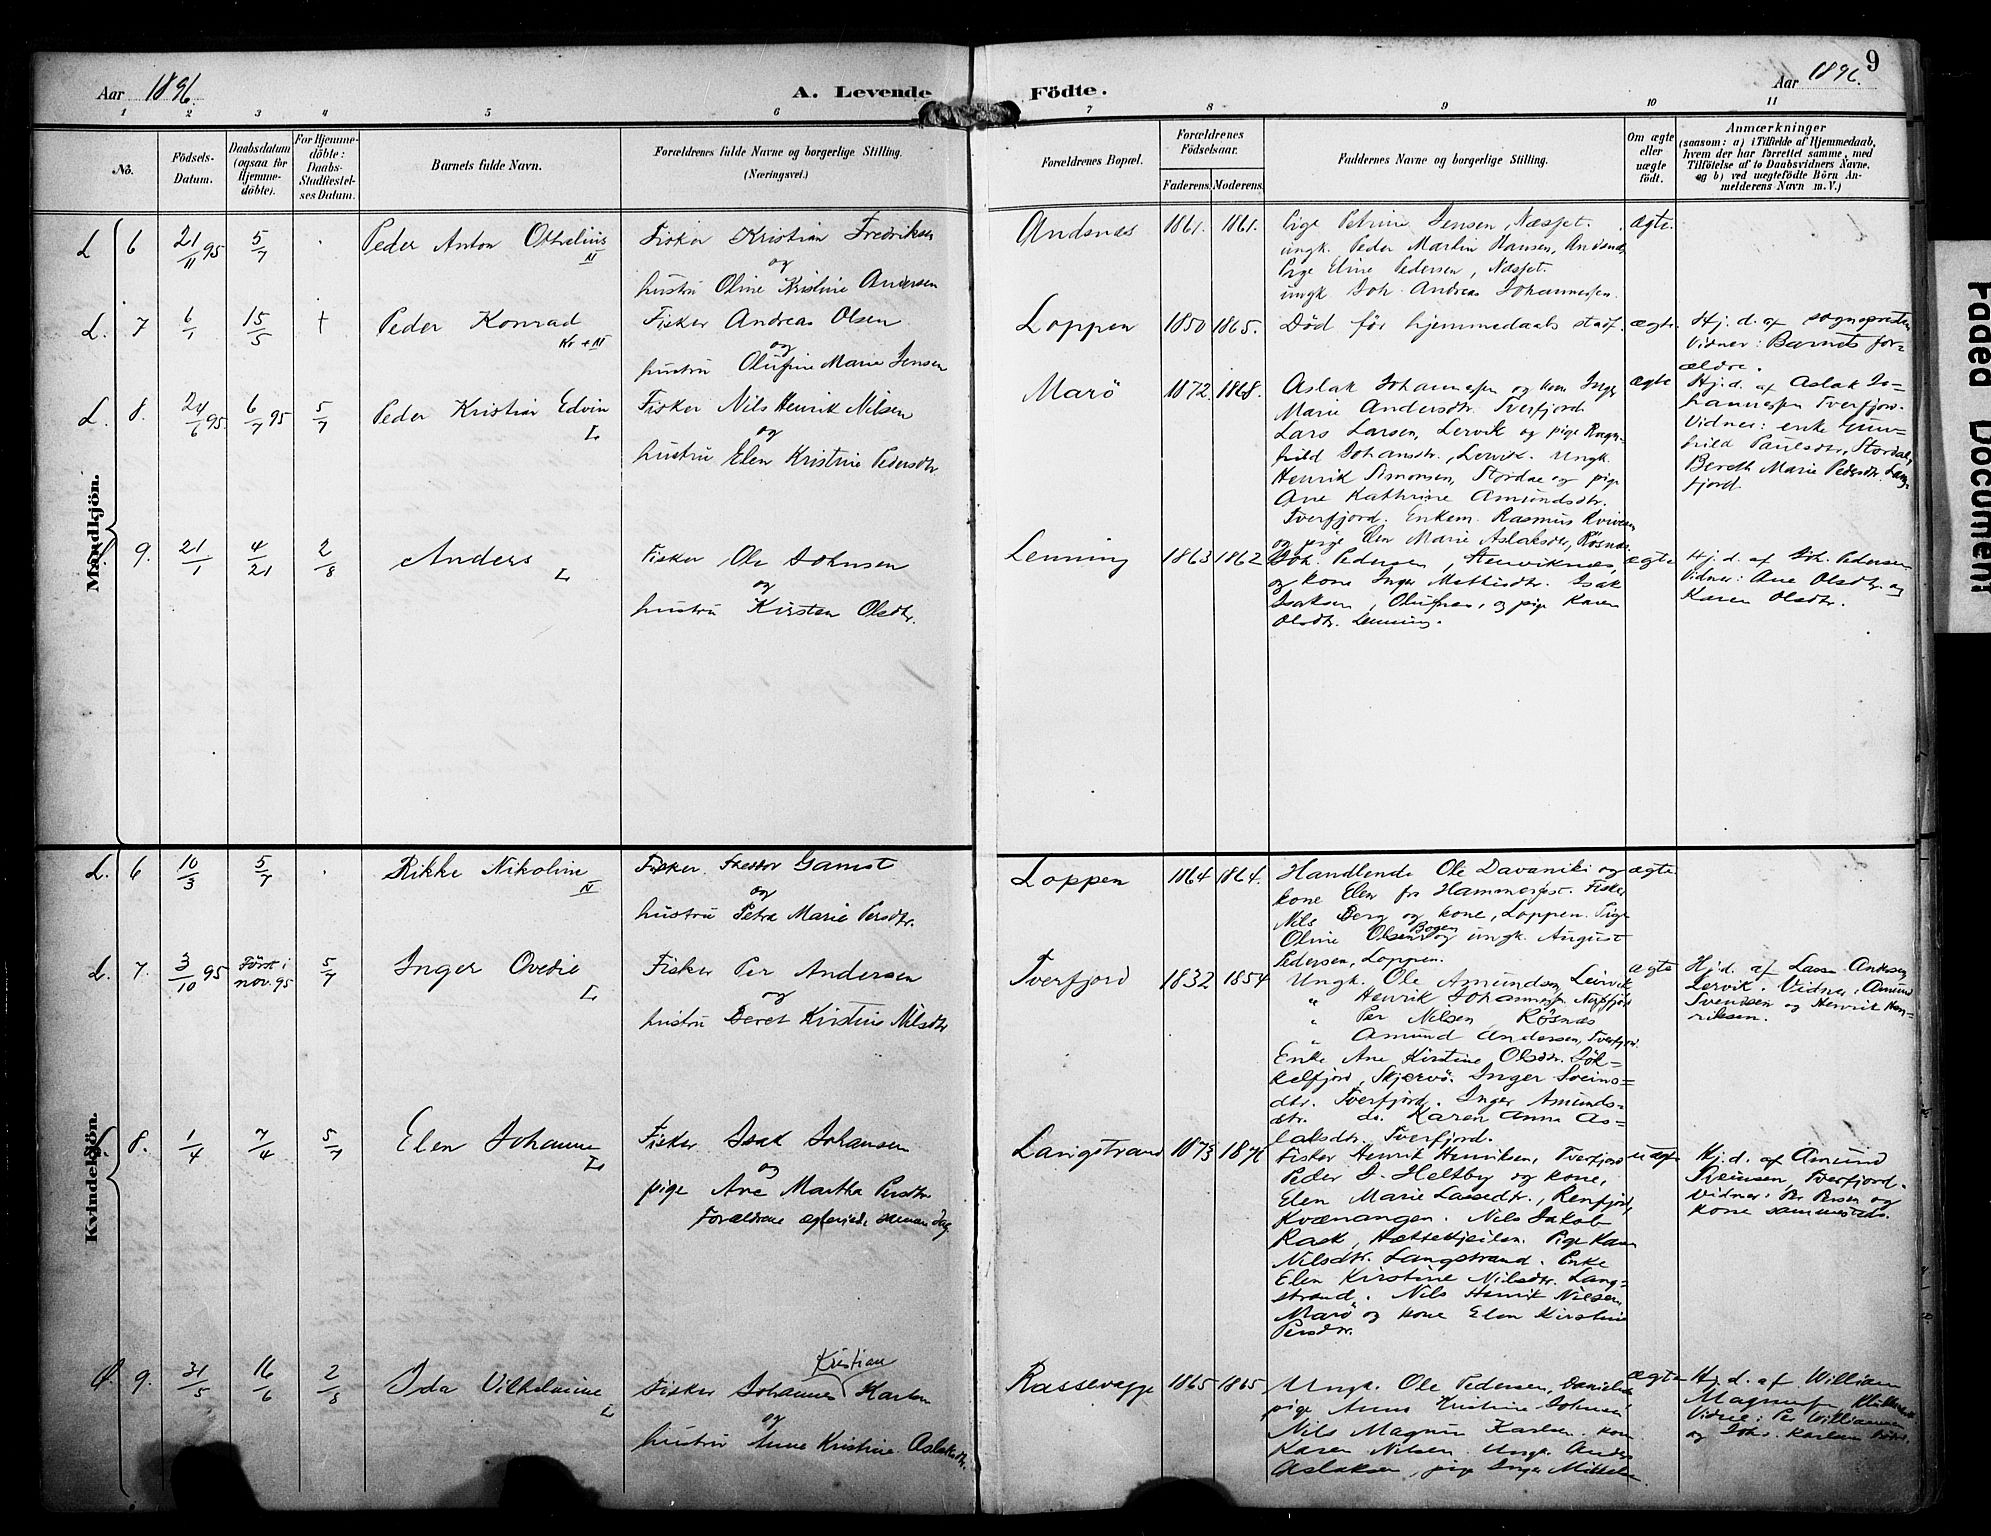 Aar 1896.
A. Levende Födte.
Aar 1896.
9
1 2 3 4 5 6 7 8 9 10 11
No.
Födsels-
Datum.
Daabsdatum
(ogsaa for
Hjemme-
döbte).
For Hjemme-
döbte:
Daabs-
Stadfæstel-
ses Datum.
Barnets fulde Navn.
Forældrenes fulde Navne og borgerlige Stilling.
(Næringsvei.)
Forældrenes Bopæl.
Forældrenes
Födselsaar.
Faderens. Moderens.
Faddernes Navne og borgerlige Stilling.
Om ægte
eller
uægte
födt.
Anmærkninger
(saasom: a) i Tilfælde af Hjemmedaab,
hvem der har forrettet samme, med
Tilföielse af to Daabsvidners Navne.
og b) ved uægtefödte Börn An-
melderens Navn m. V.)
Mandkjön.
L 6 21/11 95 5/7 Peder Anton
Fisker Kristian Fredriksen
og
hustru Oline Kristine Andersen
Andsnæs 1861. 1861.
Pige Petrine Jensen, Næsset.
ungk. Peder Martin Hansen, Andsnæs
Pige Eline Pedersen, Næsset.
ungk Joh. Andreas Johannessen.
ægte.
L. 7 6/1 15/5 + Peder Konrad
Fisker Andreas Olsen
og
hustru Olufine Marie Jensen
Loppen 1850 1865.
Död för hjemmedaabs stadf.
ægte.
Hj. d. af sognepresten
Vidner: Barnets for-
ældre.
L. 8. 24/6 95. 6/7 95 5/7 Peder Kristian Edvin
L
Fisker Nils Henrik Nilsen
og
hustru Elen Kristine Pedersdtr.
Marö 1872. 1868.
Aslak Johannessen og kone Inger
Marie Andersdtr. Tverfjord
Lars Larsen, Lervik og pige Ragn-
hild Johansdtr., Lervik. Ungk.
Henrik Simonsen, og pige
Ane Kathrine Amundsdtr.
Tverfjord. Enkem. Rasmus
og pige Elen Marie Aslaksdtr, Rösnæs.
ægte
Hj.d. af Aslak Jo-
hannessen Tverfjord.
Vidner: enke Gun-
hild Paulsdtr., Stordal,
Bereth Marie Pedersdtr. Lang-
fjord.
9. 21/1 4/21 2/8 Anders
L
Fisker Ole Johnsen
og
hustru Kirsten Olsdtr.
Lenning 1863 1862
Joh. Pedersen,
og kone Inger Mathisdtr. Isak
Isaksen, Olufnæs, og pige Karen
Olsdtr. Lenning.
ægte
Hj. d. af Joh. Pedersen
Vidner: Ane Olsdtr. og
Karen Olsdtr.
Kvindekjön.
L. 6 10/3 5/7 Rikke Nikoline
Fisker Gamst
og
hustru Petra Marie Persdtr.
Loppen 1864 1864.
Handlende Ole Davaniki og
kone Elen fra Hammerfest. Fisker
Nils Berg og kone, Loppen. Pige
Oline Olsen Bogen og ungk. August
Pedersen, Loppen.
ægte
L. 7. 3/10 95 Först i
nov. 95 5/7 Inger Ovedie
L
Fisker Per Andersen
og
hustru Beret Kirstine Nilsdtr
Tverfjord 1832 1854
Ungk. Ole Amundsen, Leirvik
" Henrik Johannessen
" Per Nilsen Rösnæs
" Amund Andersen, Tverfjord.
Enke Ane Kirstine Olsdtr. Jök-
kelfjord, Skjervö. Inger Sveins-
dtr. Tverfjord. Inger Amunds-
dtr. do. Karen Anna As-
laksdtr. Tverfjord.
ægte
Hj.d. af Lasse Andersen,
Lervik. Vidner: Amund
Svendsen og Henrik Hen-
riksen.
8. 1/4 7/4 5/7 Elen Johanne
L
Fisker Isak Johansen
og
pige Ane Martha Persdtr.
Forældrene samme dag
Langstrand 1873
Fisker Henrik Henriksen, Tverfjord
Peder J. Heltby og kone,
Elen Marie Lassedtr., Renfjord,
Kvænangen. Nils Jakob
Rask, Pige Karen
Nilsdtr. Langstrand. Enke
Elen Kirstine Nilsdtr. Lang-
strand. Nils Henrik Nilsen,
Marö og kone Elen Kirstine
Persdtr.
uægte
Hj. d. af Amund
Sveinsen, Tverfjord.
Vidner: Per Persen og
kone sammesteds.
9. 31/5 16/6 2/8 Ida Vilhelmine
L
Kristian
Fisker Johannes Karlsen
og
hustru Anne Kristine Aslaksdtr.
1865 1865
Ungk. Ole Pedersen,
pige Anne Kristine Johnsen
Nils Magnus Karlsen, kone
Karen Nilsen. Ungk. Anders
Aslaksen, pige Inger
ægte
Hj.d. af William
Vidne: Per Williamsen
og Johs. Karlsen
Faded Document